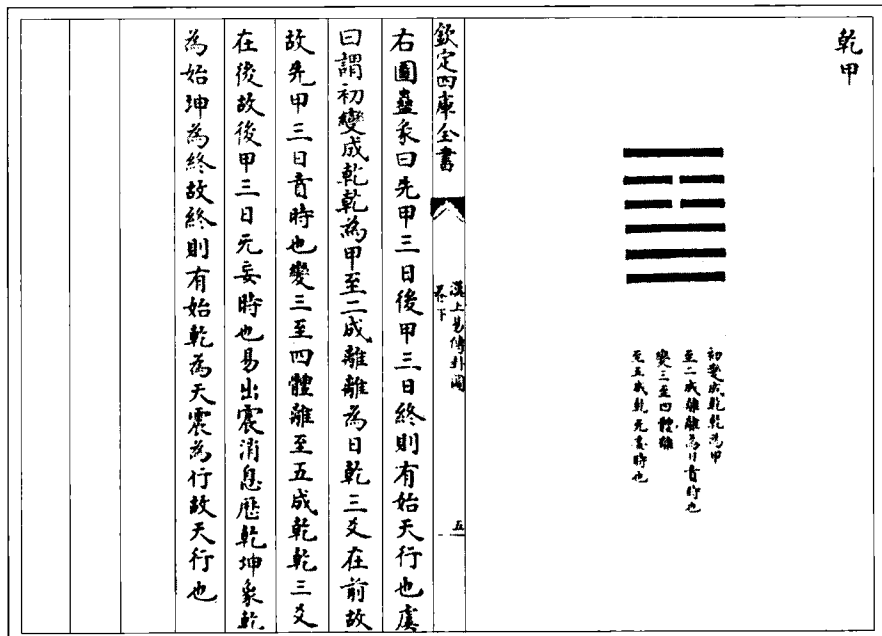 乾甲
初變成乾乾為甲
至二成離離為日賁時也
變三至四體離
至五成乾无妄時也
欽定四庫全書
漢上易傳卦圖
卷下
五
右圖蠱彖曰先甲三日後甲三日終則有始天行也虞
曰謂初變成乾乾為甲至二成離離為日乾三爻在前故
故先甲三日賁時也變三至四體離至五成乾乾三爻
在後故後甲三日无妄時也易出震消息歷乾坤象乾
為始坤為終故終則有始乾為天震為行故天行也